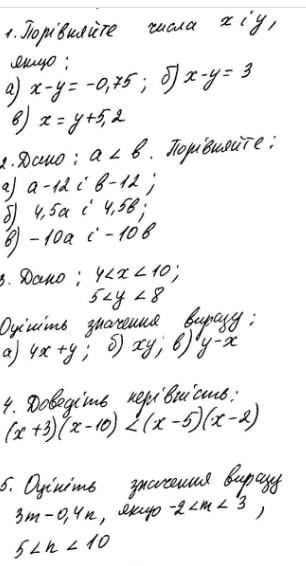 1. Порівняйте числа x і y,
якщо:
а) x-y = -0,75; б) x-y = 3
в) x = y+5,2
2. Дано: a < b. Порівняйте:
а) a-12 і b-12;
б) 4,5a і 4,5b;
в) -10a і -10b
3. Дано: 4<x<10;
5<y<8
Оцініть значення виразу:
а) 4x+y; б) xy; в) y-x
4. Доведіть нерівність:
(x+3)(x-10) <(x-5)(x-2)
5. Оцініть значення виразу
3m-0,4n, якщо -2<m<3,
5<n<10